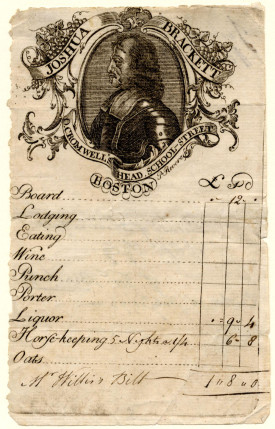 JOSHUA BRACKETT
O. CROMWELL'S HEAD SCHOOL-STREET
BOSTON
£ S D
Board 12
Lodging
Eating
Wine
Punch
Porter
Liquor 9 4
Horse-keeping 5 Nights a 1/4 6 8
Oats
Mr Willis's Bill 1 8 0